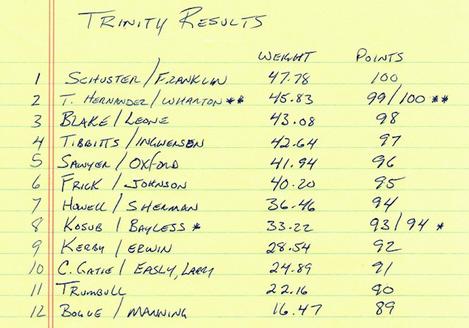 TRINITY RESULTS
WEIGHT POINTS
1 SCHUSTER / FRANKLIN 47.78 100
2 T. HERNANDEZ / WHARTON ** 45.83 99/100 **
3 BLAKE / LEONE 43.08 98
4 TIBBITTS / INGWERSEN 42.64 97
5 SAWYER / OXFORD 41.94 96
6 FRICK / JOHNSON 40.20 95
7 HOWELL / SHERMAN 36.46 94
8 KOSUB / BAYLESS * 33.22 93/94 *
9 KERBY / ERWIN 28.54 92
10 C. GATIE / EASLY, LARRY 24.89 91
11 TRUMBULL 22.16 90
12 BOGUE / MANNING 16.47 89